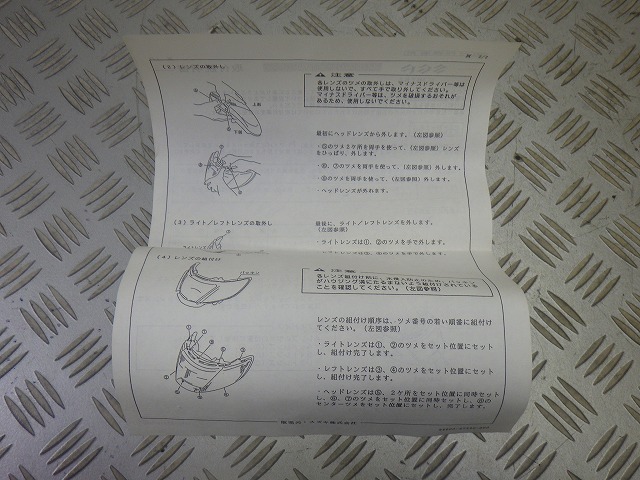 (2) レンズの取外し
注意
各レンズのツメの取外しは、マイナスドライバー等は
使用しないで、すべて手で取り外してください。
マイナスドライバー等は、ツメを破損するおそれが
あるため、使用しないでください。
上側
下側
最初にヘッドレンズから外します。(左図参照)
・⑤のツメ2ケ所を両手を使って、(左図参照)レンズ
をひっぱり、外します。
・⑥、⑦のツメを両手を使って、(左図参照)外します。
・⑧のツメを両手を使って、(左図参照)外します。
・ヘッドレンズが外れます。
(3) ライト/レフトレンズの取外し
最後に、ライト/レフトレンズを外します。
(左図参照)
・ライトレンズは①、②のツメを手で外します。
(4) レンズの組付け
パッキン
注意
各レンズ組付け前に、
がハウジング溝にたるまないよう組付けされている
ことを確認してください。(左図参照)
レンズの組付け順序は、ツメ番号の若い順番に組付け
てください。(左図参照)
・ライトレンズは①、②のツメをセット位置にセット
し、組付け完了します。
・レフトレンズは③、④のツメをセット位置にセット
し、組付け完了します。
・ヘッドレンズは⑤、2ケ所をセット位置に同時セット
し、⑥、⑦のツメをセット位置に同時セットし、⑧の
センターツメをセット位置にセットし、完了します。
販売元・スズキ株式会社